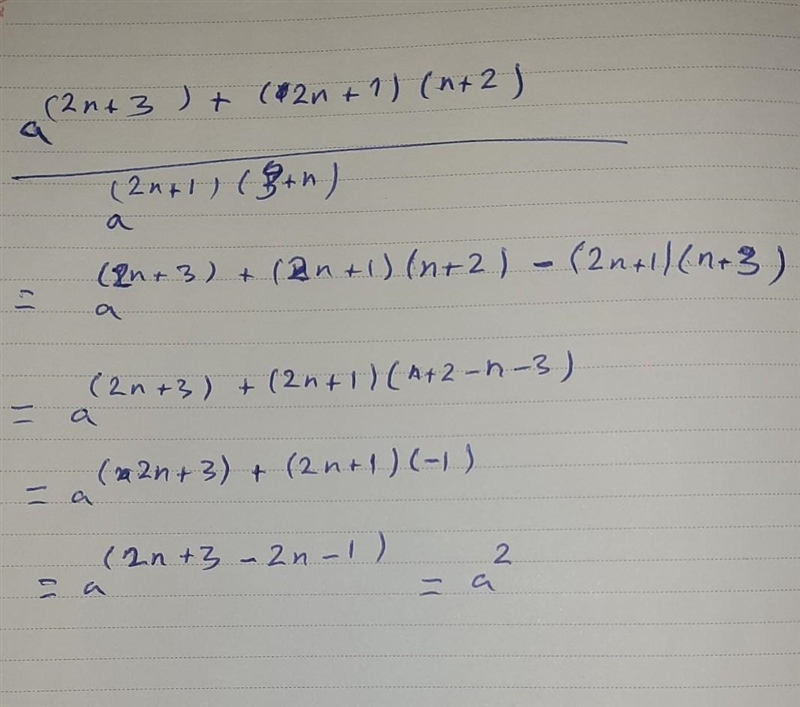 a^(2n+3) + (2n+1)(n+2)
a^(2n+1)(3+n)
= a^(2n+3) + (2n+1)(n+2) - (2n+1)(n+3)
= a^(2n+3) + (2n+1)(n+2-n-3)
= a^(2n+3) + (2n+1)(-1)
= a^(2n+3-2n-1) = a^2